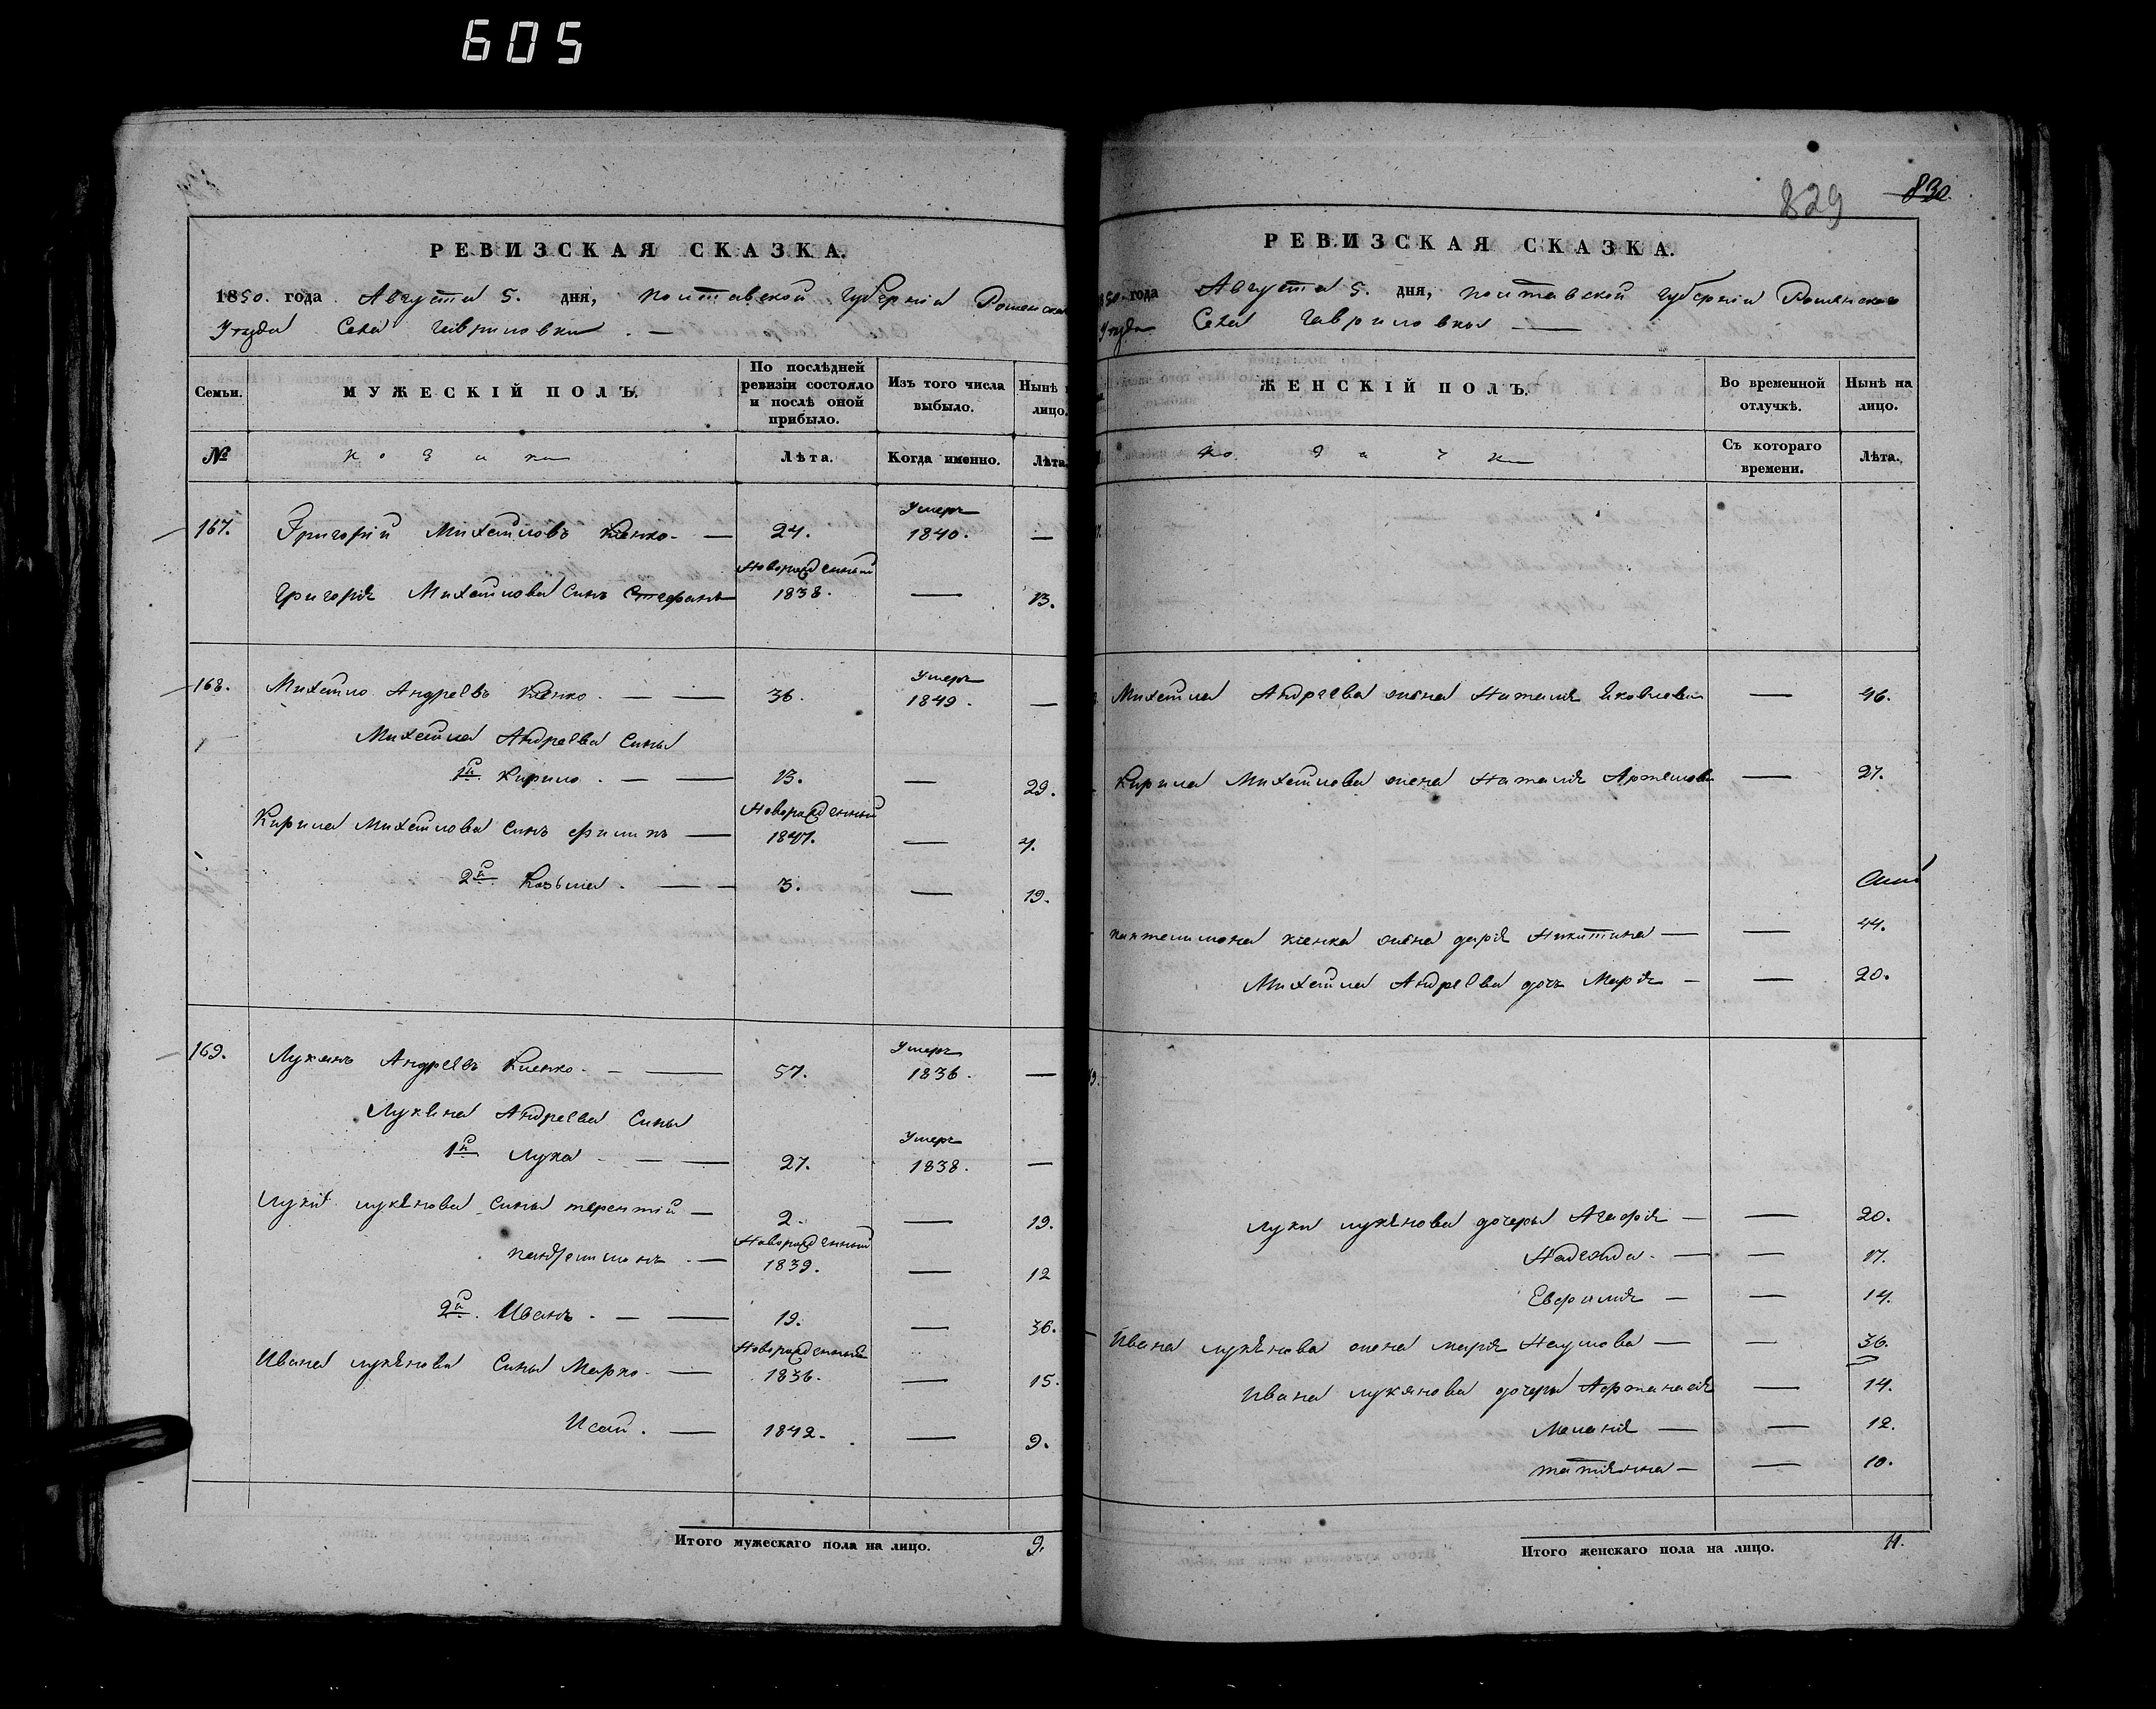 605
РЕВИЗСКАЯ СКАЗКА.
1850. года Августа 5. дня, Полтавской губерніи Роменска
Уезда Села Гавриловки. —
Семьи. МУЖЕСКІЙ ПОЛЪ. По послѣдней ревизіи состояло и послѣ оной прибыло. Изъ того числа выбыло. Нынѣ лицо.
№ козаки Лѣта. Когда именно. Лѣта
Умеръ
167. Григорій Михайловъ — 24. 1840. —
Новорожденный
Григорія Михайлова Сынъ Стефанъ 1838. — 13.
Умеръ
168. Михайло Андреевъ — — 36. 1849. —
Михайла Андреева Сыны
1й Кирило. — — 13. — 29.
Новорожденный
Кирила Михайлова Сынъ Филипъ — 1847. — 4.
2й. Козьма. — — 3. — 19.
Умеръ
169. Лукянъ Андреевъ — — 57. 1836. —
Лукяна Андреева Сыны
Умеръ
1й Лука — — — 27. 1838. —
Луки Лукянова Сыны Терентій — 2. — 19.
Новорожденный
— 1839. — 12
2й. Иванъ. — — 19. — 36.
Новорожденный
Ивана Лукянова Сыны Марко. — 1836. — 15.
Исай. — 1842. — 9.
Итого мужескаго пола на лицо. 9.
829 830
РЕВИЗСКАЯ СКАЗКА.
1850 года Августа 5. дня, Полтавской губерніи Роменскаго
Уезда Села Гавриловки —
ЖЕНСКІЙ ПОЛЪ. Во временной отлучкѣ. Нынѣ на лицо.
козачки Съ котораго времени. Лѣта.
Михайла Андреева жена Наталія Яковлева — 46.
Кирила Михайлова жена Наталія Артемова — 27.
Пантелимона жена Дарія Никитина — — 44.
Михайла Андреева дочь Марія — — 20.
Луки Лукянова дочеры Агафія — — 20.
Надежда. — — 17.
Евфимія — — 14.
Ивана Лукянова жена Марія Наумова — — 36.
Ивана Лукянова дочеры — 14.
Меланія — — 12.
Татіянна — — 10.
Итого женскаго пола на лицо. 11.